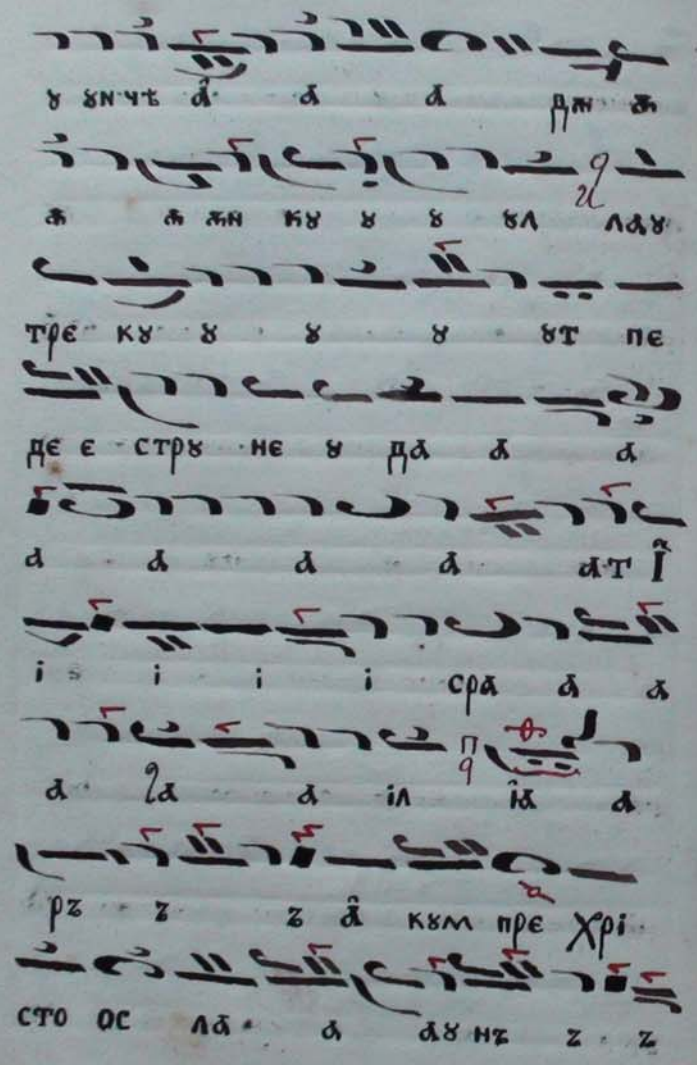 ꙋ ꙋн чѣ а̑ а а дѫ ѫ
ѫ ѫ ѫн кꙋ ꙋ ꙋ ꙋл лаꙋ
трє кꙋ ꙋ ꙋ ꙋ ꙋт пє
дє є стрꙋ нє ꙋ да а а
а а а а ат І҆̑
і і і і сра а а
а ꙋа а іл і̑а а
ръ ъ ъ а̑ кꙋм прє Хрі
сто ос ла а аꙋ нъ ъ ъ